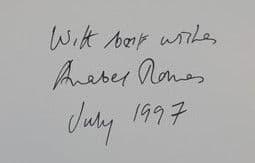 With best wishes
Anabel
July 1997